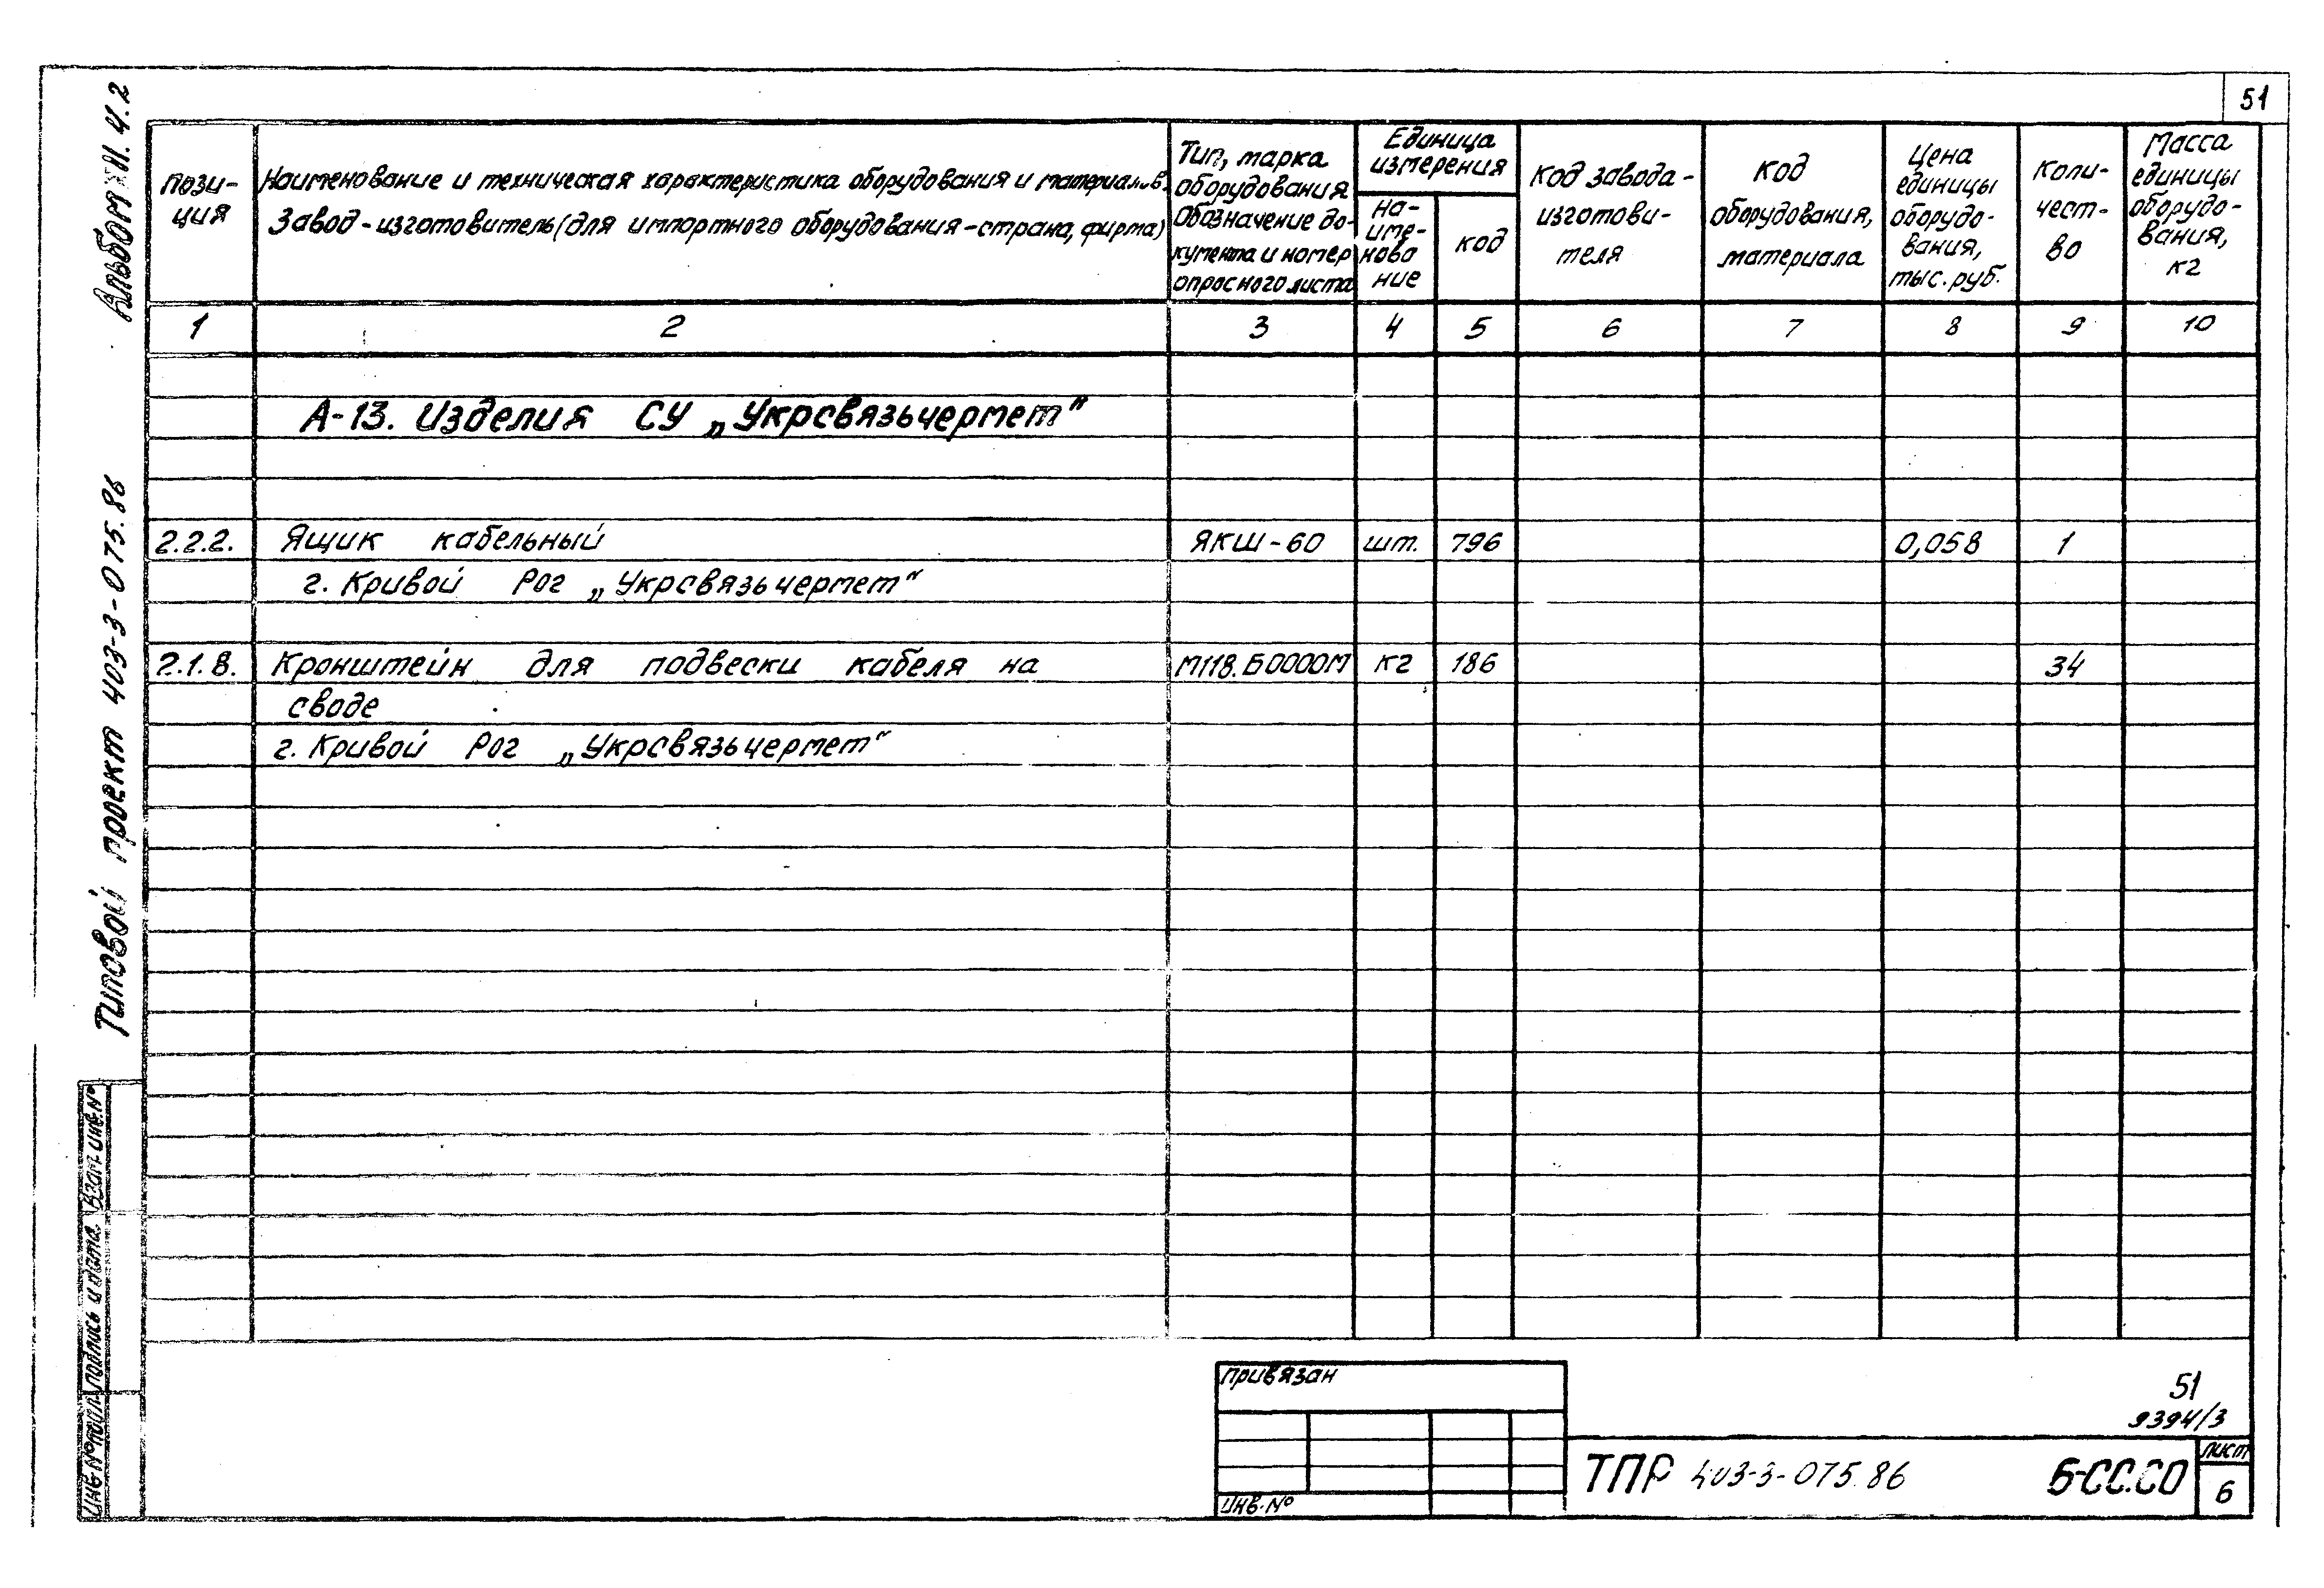 51
Альбом XII. 4.2
Типовой проект 403-3-075.86
пози-
ция
Наименование и техническая характеристика оборудования и материалов.
Завод-изготовитель (для импортного оборудования-страна, фирма)
Тип, марка
оборудования
Обозначение до-
кумента и номер
опросного листа
Единица
измерения
на-
име-
нова
ние
код
код завода-
изготови-
теля
код
оборудования,
материала
Цена
единицы
оборудо-
вания,
тыс. руб.
Коли-
чест-
во
Масса
единицы
оборудо-
вания,
кг
1 2 3 4 5 6 7 8 9 10
А-13. Изделия СУ „Укрсвязьчермет“
2.2.2. Ящик кабельный ЯКШ-60 шт. 796 0,058 1
г. Кривой Рог „Укрсвязьчермет“
2.1.8. Кронштейн для подвески кабеля на М118.Б0000М кг 186 34
своде
г. Кривой Рог „Укрсвязьчермет“
Взам. инв. №
Подпись и дата
Инв № подл.
привязан
Инв. №
51
9394/3
ТПР 403-3-075.86 6-СС.СО
лист
6